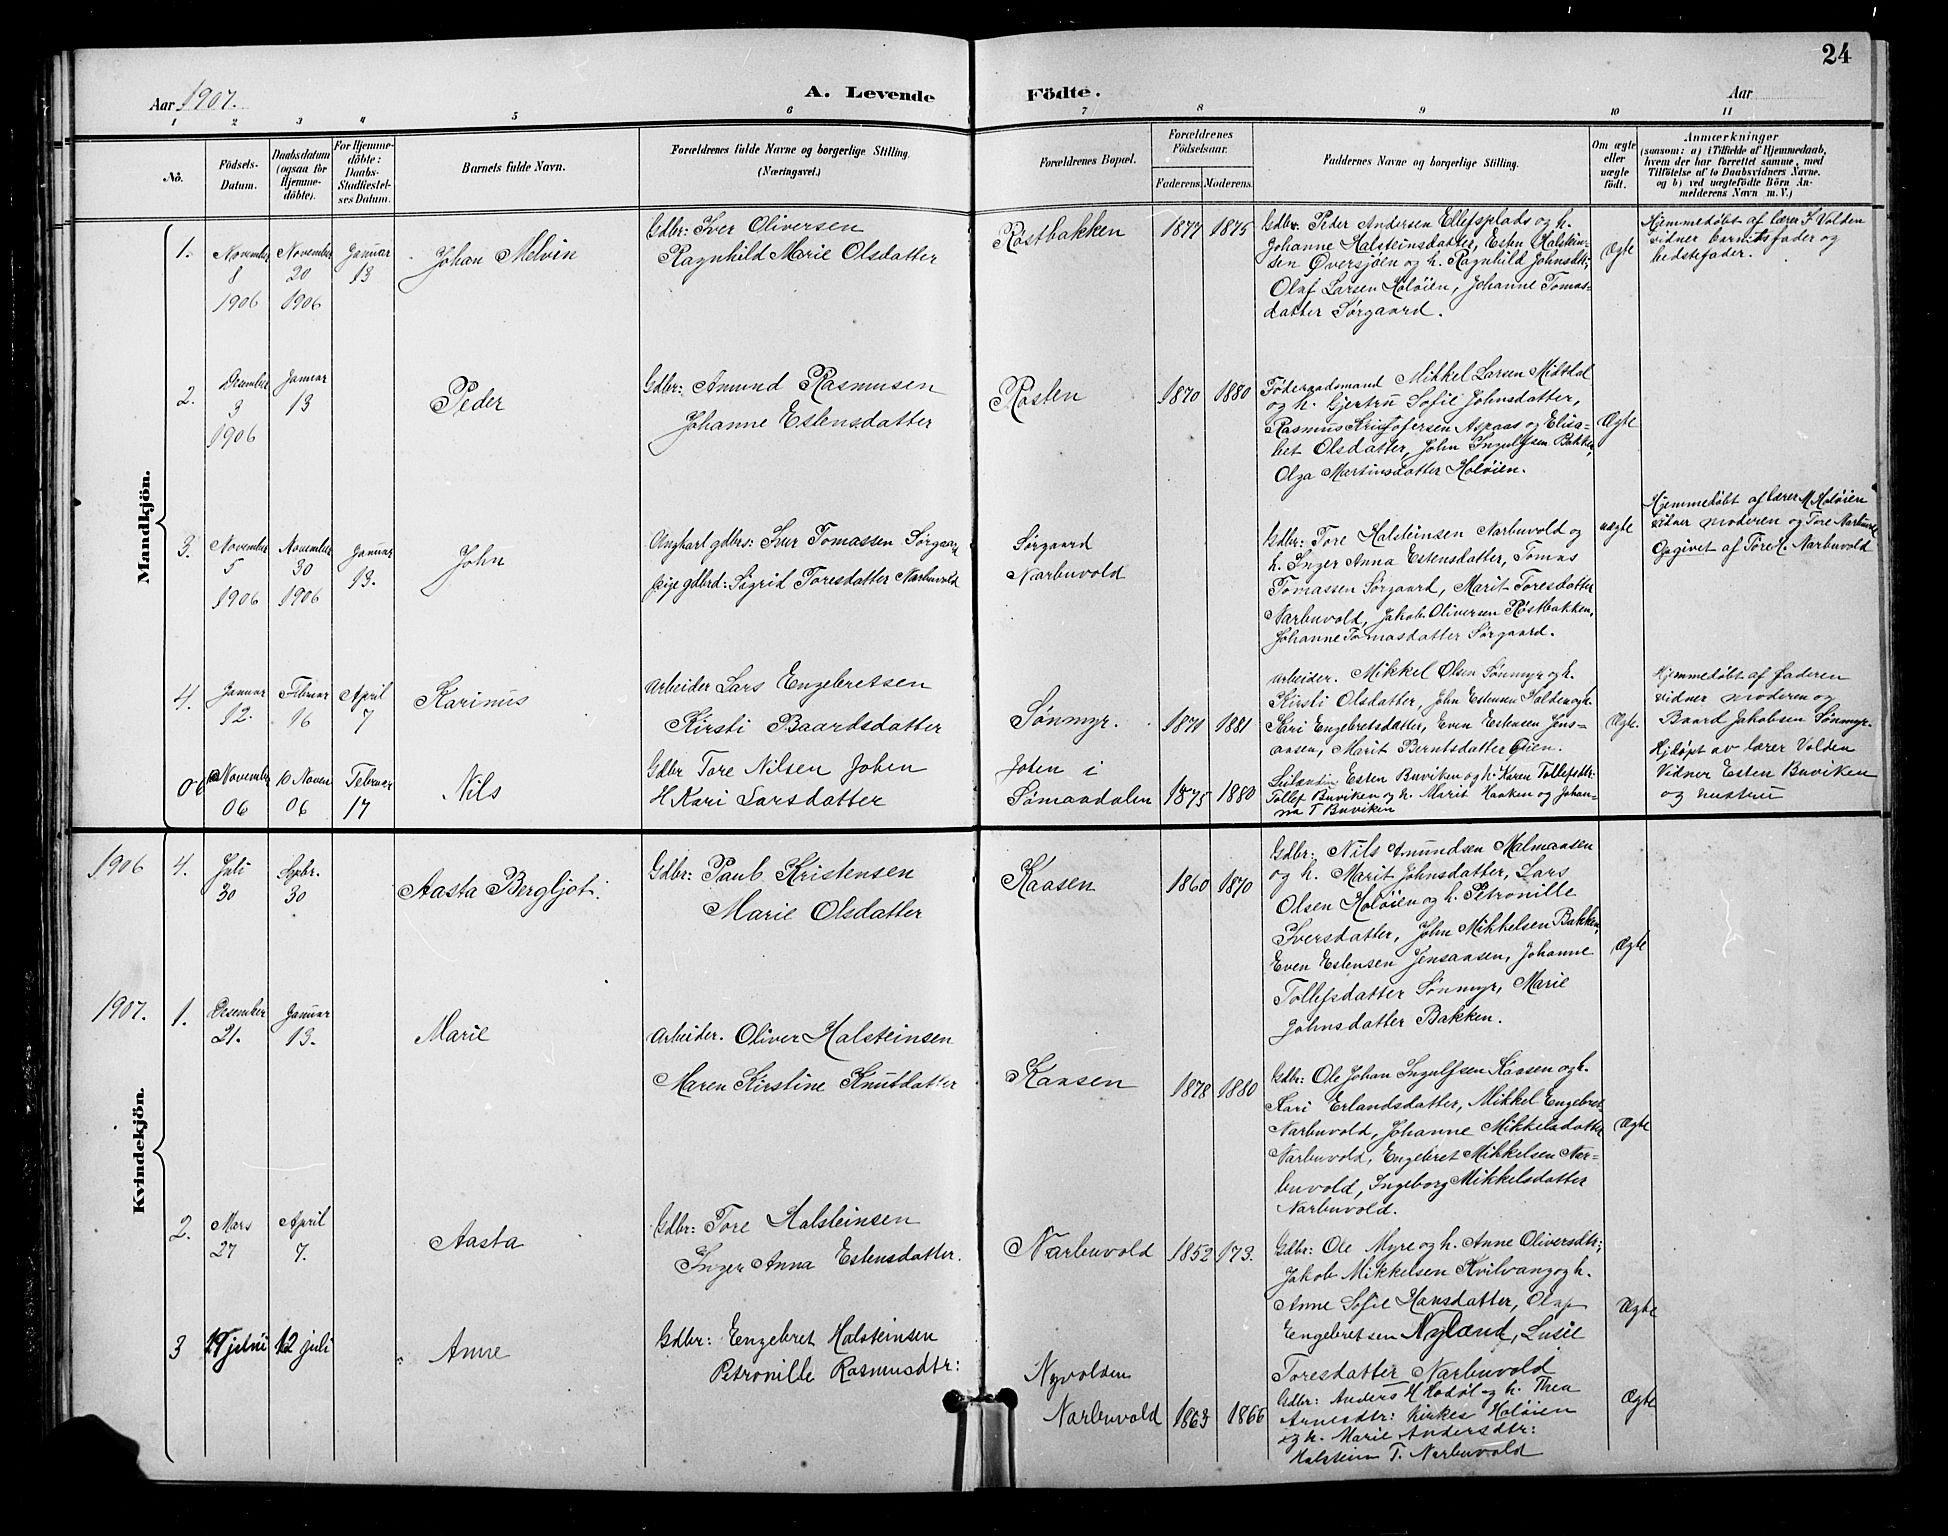 24
Aar 1907.
A. Levende Födte.
Aar
1 2 3 4 5 6 7 8 9 10 11
No.
Födsels-
Datum.
Daabsdatum
(ogsaa for
Hjemme-
döbte).
For Hjemme-
döbte:
Daabs-
Stadfæstel-
ses Datum.
Barnets fulde Navn.
Forældrenes fulde Navne og borgerlige Stilling.
(Næringsvei.)
Forældrenes Bopæl.
Forældrenes
Födselsaar.
Faderens. Moderens.
Faddernes Navne og borgerlige Stilling.
Om ægte
eller
uægte
födt.
Anmærkninger
(saasom: a) i Tilfælde af Hjemmedaab,
hvem der har forrettet samme, med
Tilföielse af to Daabsvidners Navne.
og b) ved uægtefödte Börn An-
melderens Navn m. V.)
Mandkjön.
1.
November
8
1906
November
20
1906
Januar
13
Johan Melvin
Gdbr: Iver Oliversen
Ragnhild Marie Olsdatter
Røstbakken
1877 1875
Gdbr. Peder Andersen Ellefsplads og h.
Johanne Halsteinsdatter, Esten Halstein-
sen Øversjøen og h. Ragnhild Johnsdtr,
Olaf Larsen Holøien, Johanne Tomas-
datter Sørgaard.
Ægte
Hjemmedøbt af lærer I Volden
vidner barnets fader og
bedstefader.
2.
Desember
3
1906
Januar
13
Peder
Gdbr: Amund Rasmusen
Johanne Estensdatter
Røsten
1870 1880
Føderaadsmand Mikkel Larsen Midtdal
og h. Gjertru Sofie Johnsdatter,
Rasmus Kristofersen Aspaas og Elisa-
bet Olsdatter, John Ingulfsen Bakken,
Olga Martinsdatter Holøien.
Ægte
3.
November
5
1906
November
30
1906
Januar
13.
John
Ungkarl gdbrs: Iver Tomassen Sørgaard
Pige gdbrd: Sigrid Toresdatter Narbuvold
Sørgaard
Narbuvold
Gdbr: Tore Halsteinsen Narbuvold og
h. Inger Anna Estensdatter, Tomas
Tomassen Sørgaard, Marit Toresdatter
Narbuvold, Jakob Oliversen Røstbakken,
Johanne Tomasdatter Sørgaard.
uægte
Hjemmedøbt af lærer M Holøien
vidner moderen og Tore Narbuvold
Opgivet af Tore H. Narbuvold
4.
Januar
12.
Februar
16
April
7
Karinus
Arbeider Lars Engebretsen
Kirsti Baardsdatter
Sønmyr.
1871 1881
Arbeider. Mikkel Olsen Sønmyr og h.
Kirsti Olsdatter, John Estensen Volden og h.
Kari Engebretsdatter, Even Estensen Jens-
aasen, Marit Berntsdatter Øien.
Ægte.
Hjemmedøbt af faderen
vidner moderen og
Baard Jakobsen Sønmyr.
November
06
10 Novem
06
Februar
17
Nils
Gdbr Tore Nilsen Joten
H Kari Larsdatter
Joten i
Sømaadalen
1875 1880
Esten Buviken og h. Karen Tollefsdtr.
Tollef Buviken og h. Marit Haaken og Johan-
na T Buviken
Hjdøpt av lærer Volden
Vidner Esten Buviken
og hustru
Kvindekjön.
1906
4.
Juli
30
Sepbr.
30
Aasta Bergljot.
Gdbr: Paul Kristensen
Marie Olsdatter
Kaasen
1860 1870
Gdbr: Nils Amundsen Malmaasen
og h. Marit Johnsdatter, Lars
Olsen Holøien og h. Petronille
Iversdatter, John Mikkelsen Bakken,
Even Estensen Jensaasen, Johanne
Tollefsdatter Sønmyr, Marie
Johnsdatter Bakken.
Ægte
1907.
1.
Desember
21.
Januar
13.
Marie
Arbeider. Oliver Halsteinsen
Maren Kirstine Knutdatter
Kaasen
1878 1880
Gdbr: Ole Johan Ingulfsen Kaasen og h.
Kari Erlandsdatter, Mikkel Engebret-
Narbuvold, Johanne Mikkelsdatter
Narbuvold, Engebret Mikkelsen Nar-
buvold, Ingeborg Mikkelsdatter
Narbuvold.
Ægte
2.
Mars
27
April
7.
Aasta
Gdbr: Tore Halsteinsen
Inger Anna Estensdatter.
Narbuvold
1852 173.
Gdbr: Ole Myre og h. Anne Oliversdtr;
Jakob Mikkelsen Kvilvang og h.
Anne Sofie Hansdatter, Olaf
Engebretsen Nyland, Lusie
Toresdatter Narbuvold
Ægte
3
12 juli
Anne
Gdbr: Engebret Halsteinsen
Petronille Rasmusdtr:
Nyvolden
Narbuvold
1863 1866
Gdbr: Anders H Hodøl og h. Thea
Arnesdtr: Holøien
og h. Marie Andersdtr:
Halstein T. Narbuvold
Ægte